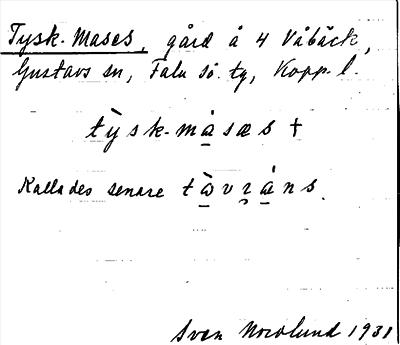 Tysk-Mases, gård å 4 Våbäck,
Gustavs sn, Falu sö. tg, Kopp. l.
tỳsk-må̲sæs †
Kallades senare tà̲vrå̲ns.
Sven Norlund 1931